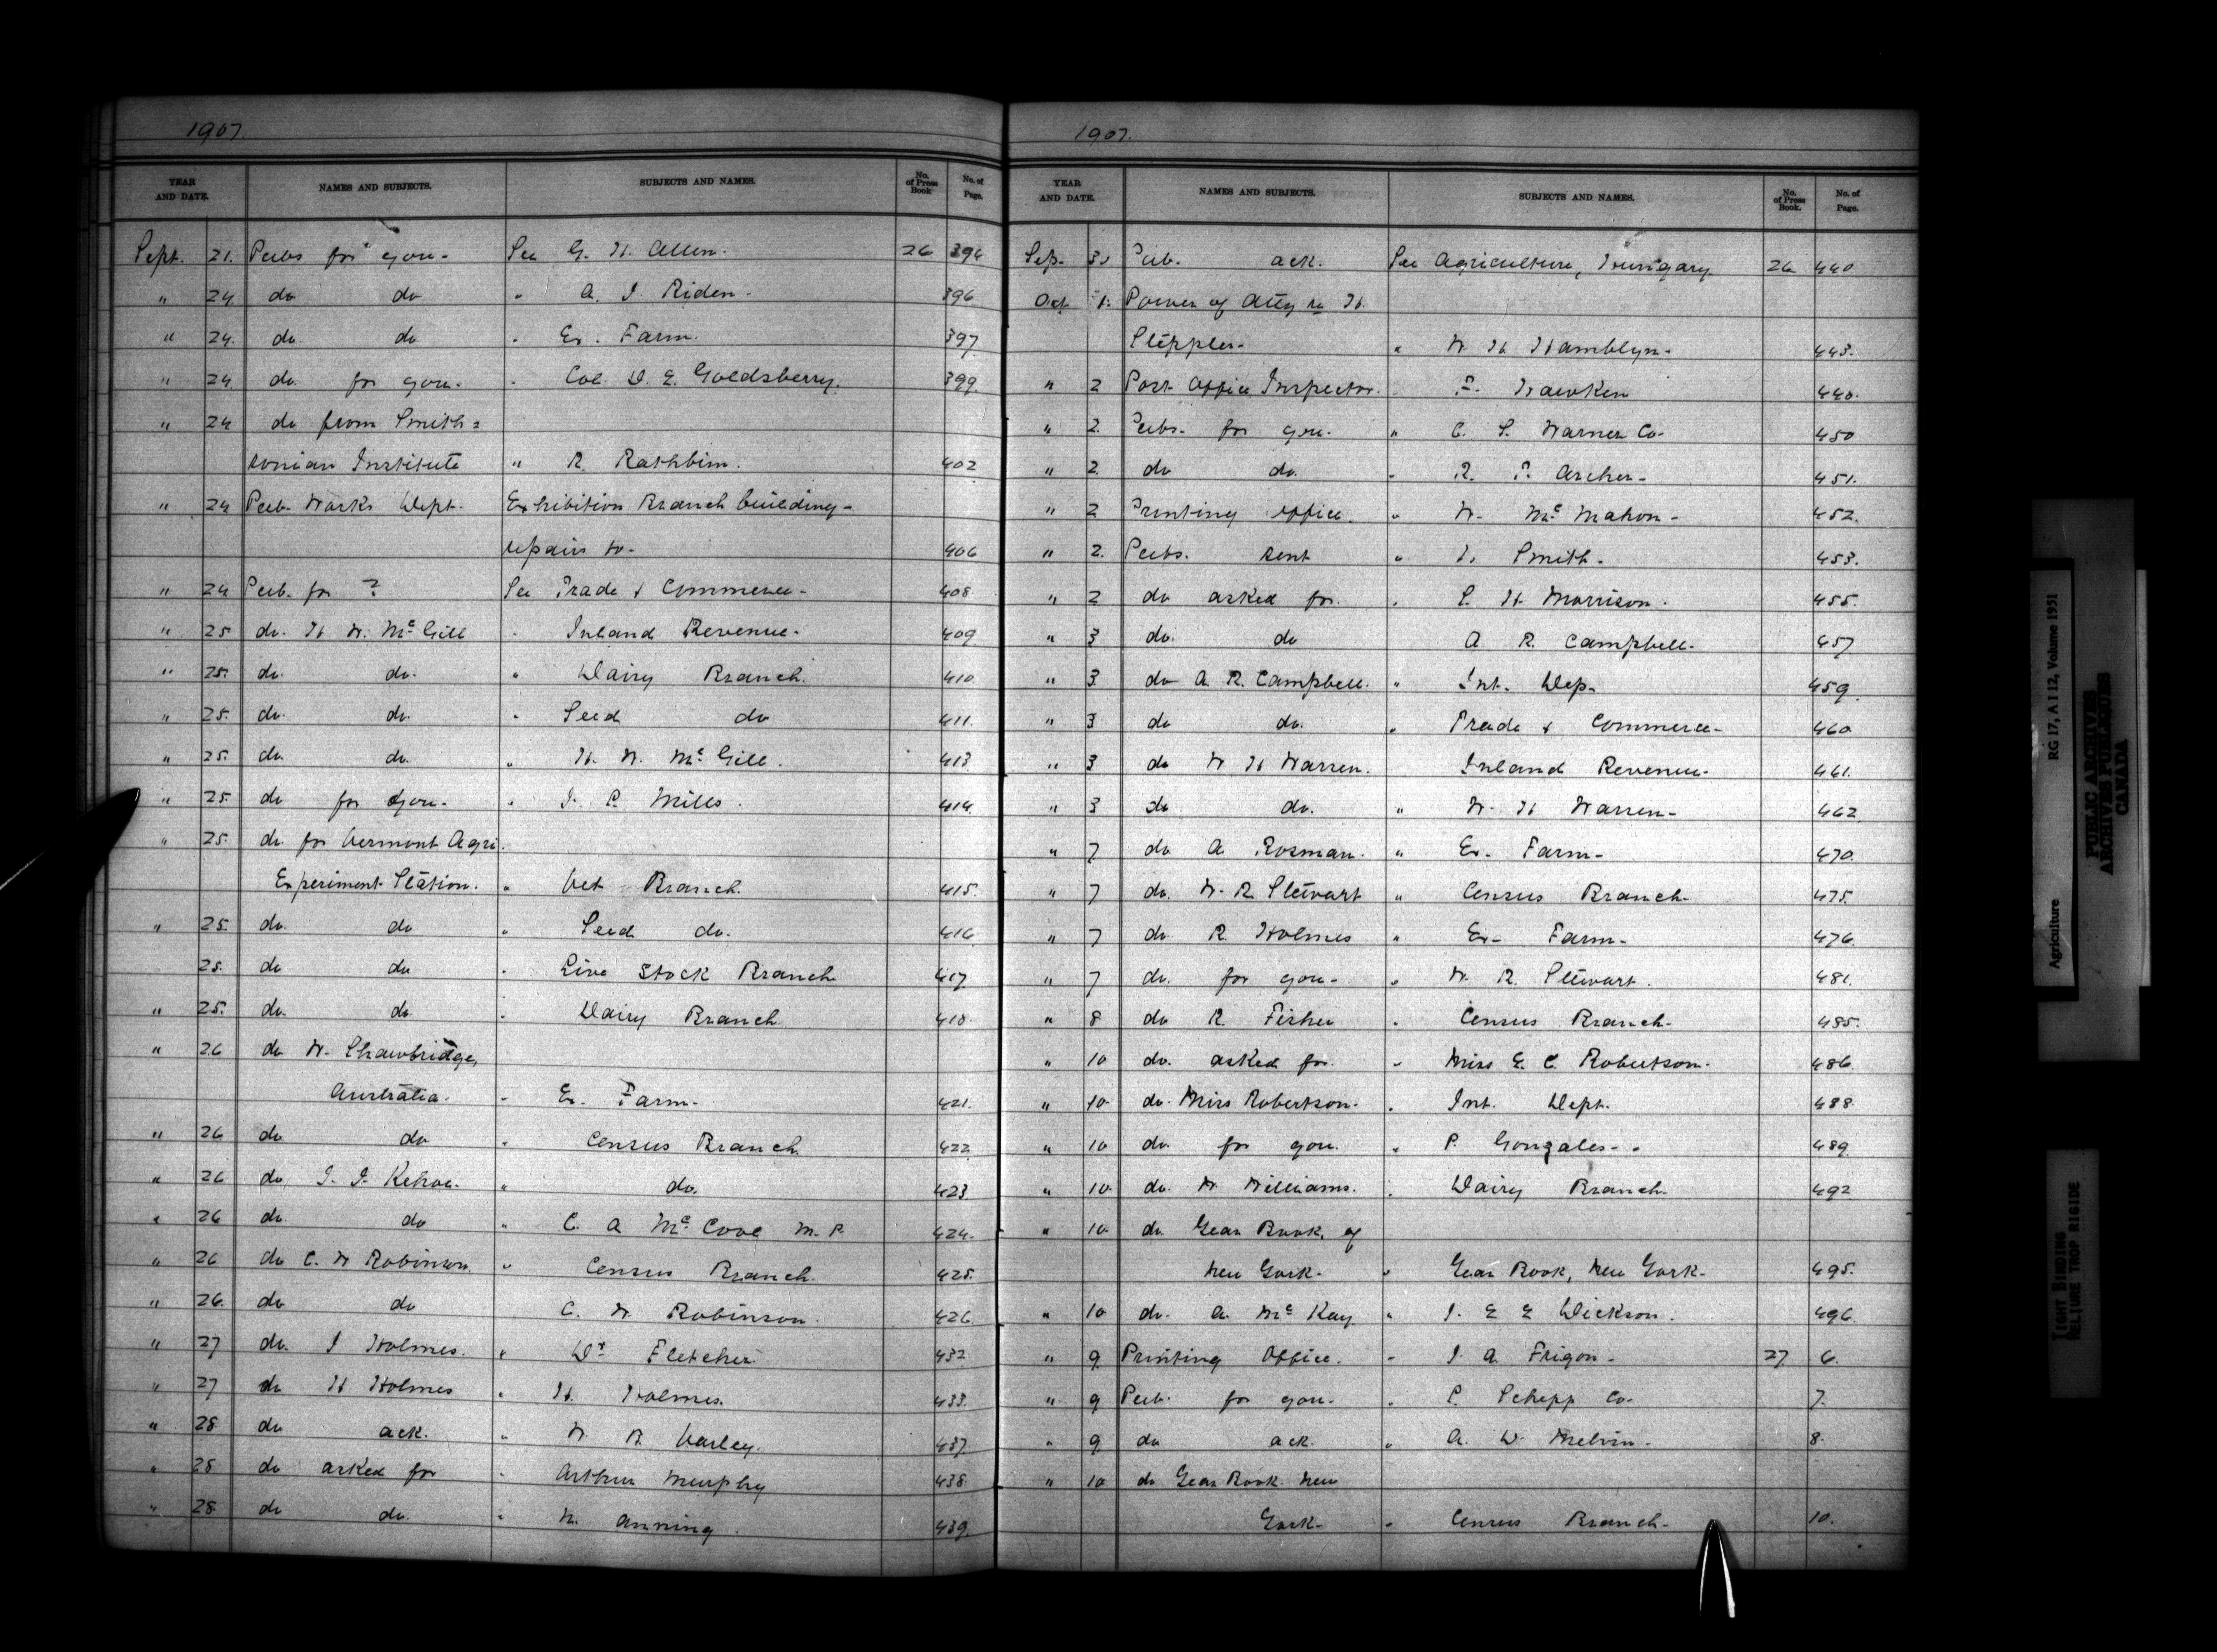 1907
YEAR AND DATE. NAMES AND SUBJECTS. SUBJECTS AND NAMES. No. of Press Book No. of Page.
Sept. 21. Pubs for you- See G. H. Allen. 26 394
" 24 do do " A. J. Riden- 396
" 24. do do " Ex. Farm. 397
" 24. do. for you- " Col. D. E. Goldsberry. 399.
" 24 do from Smith=
sonian Institute " R. Rathbun. 402
" 24 Pub. Works Dept. Exhibition Branch building-
repairs to- 406
" 24 Pub. for ? See Trade & Commerce- 408
" 25 do. H W. McGill " Inland Revenue- 409
" 25. do. do. " Dairy Branch. 410
" 25. do. do. " Seed do 411.
" 25. do. do. " H. W. McGill. 413
" 25. do for you- " J. P. Mills. 414.
" 25. do. for Vermont Agri.
Experiment Station. " Vet Branch. 415.
" 25. do. do " Seed do. 416
25. do do " Live Stock Branch 417
" 25. do. do " Dairy Branch 418.
" 26 do W. Shawbridge,
Australia. " Ex. Farm- 421.
" 26 do do " Census Branch 422
" 26 do J. J. Kehoe. " do. 423
" 26 do do " C. A McCool M.P 424.
" 26 do C. W Robinson. " Census Branch. 425.
" 26. do do C. W. Robinson. 426
" 27 do. J Holmes. " Dr Fletcher. 432
" 27 do H Holmes " H. Holmes. 433.
" 28 do ack. " W. R Varley. 437
" 28 do asked for " Arthur Murphy 438
" 28. do do. " W. Anning. 439.
1907.
YEAR AND DATE. NAMES AND SUBJECTS. SUBJECTS AND NAMES. No. of Press Book. No. of Page.
Sep. 30 Pub. ack. See Agriculture, Hungary 26 440
Oct 1. Power of Atty re H.
Steppler- " W. H Hamblyn- 443.
" 2 Post Office Inspector. " F. Hawken 448.
" 2. Pubs. for you. " C. S. Warner Co- 450
" 2. do do. " R. P. Archer- 451.
" 2 Printing Office. " W. McMahon- 452.
" 2. Pubs. sent " Smith. 453.
" 2 do asked for. " S. H. Morrison. 455.
" 3 do. do A R. Campbell- 457
" 3. do A. R. Campbell. " Int. Dep. 459.
" 3 do do. " Trade & Commerce- 460.
" 3 do W H Warren. Inland Revenue- 461.
" 3 do do. " W. H Warren- 462.
" 7 do A. Rosman. " Ex- Farm- 470.
" 7 do. W. R. Stewart " Census Branch- 475.
" 7 do R. Holmes " Ex- Farm- 476.
" 7 do. for you- " W. R. Stewart. 481.
" 8 do R. Fisher " Census Branch- 485.
" 10 do. asked for. " Miss E. C. Robertson. 486.
" 10. do. Miss Robertson. " Int. Dept. 488
" 10 do. for you. " P. Gonzales- 489
" 10. do. W Williams. " Dairy Branch. 492
" 10. do Year Book, of
New York- " Year Book, New York- 495.
" 10 do. A. McKay " J. E E Dickson. 496.
" 9 Printing Office. " J. A. Frigon- 27 6.
" 9 Pub. for you- " Schepp Co- 7.
" 9 do ack. " A. D. Melvin- 8.
" 10 do Year Book. New
York- " Census Branch- 10.
Agriculture RG 17, A I 12, Volume 1951
PUBLIC ARCHIVES
ARCHIVES PUBLIQUES
CANADA
TIGHT BINDING
RELIURE TROP RIGIDE